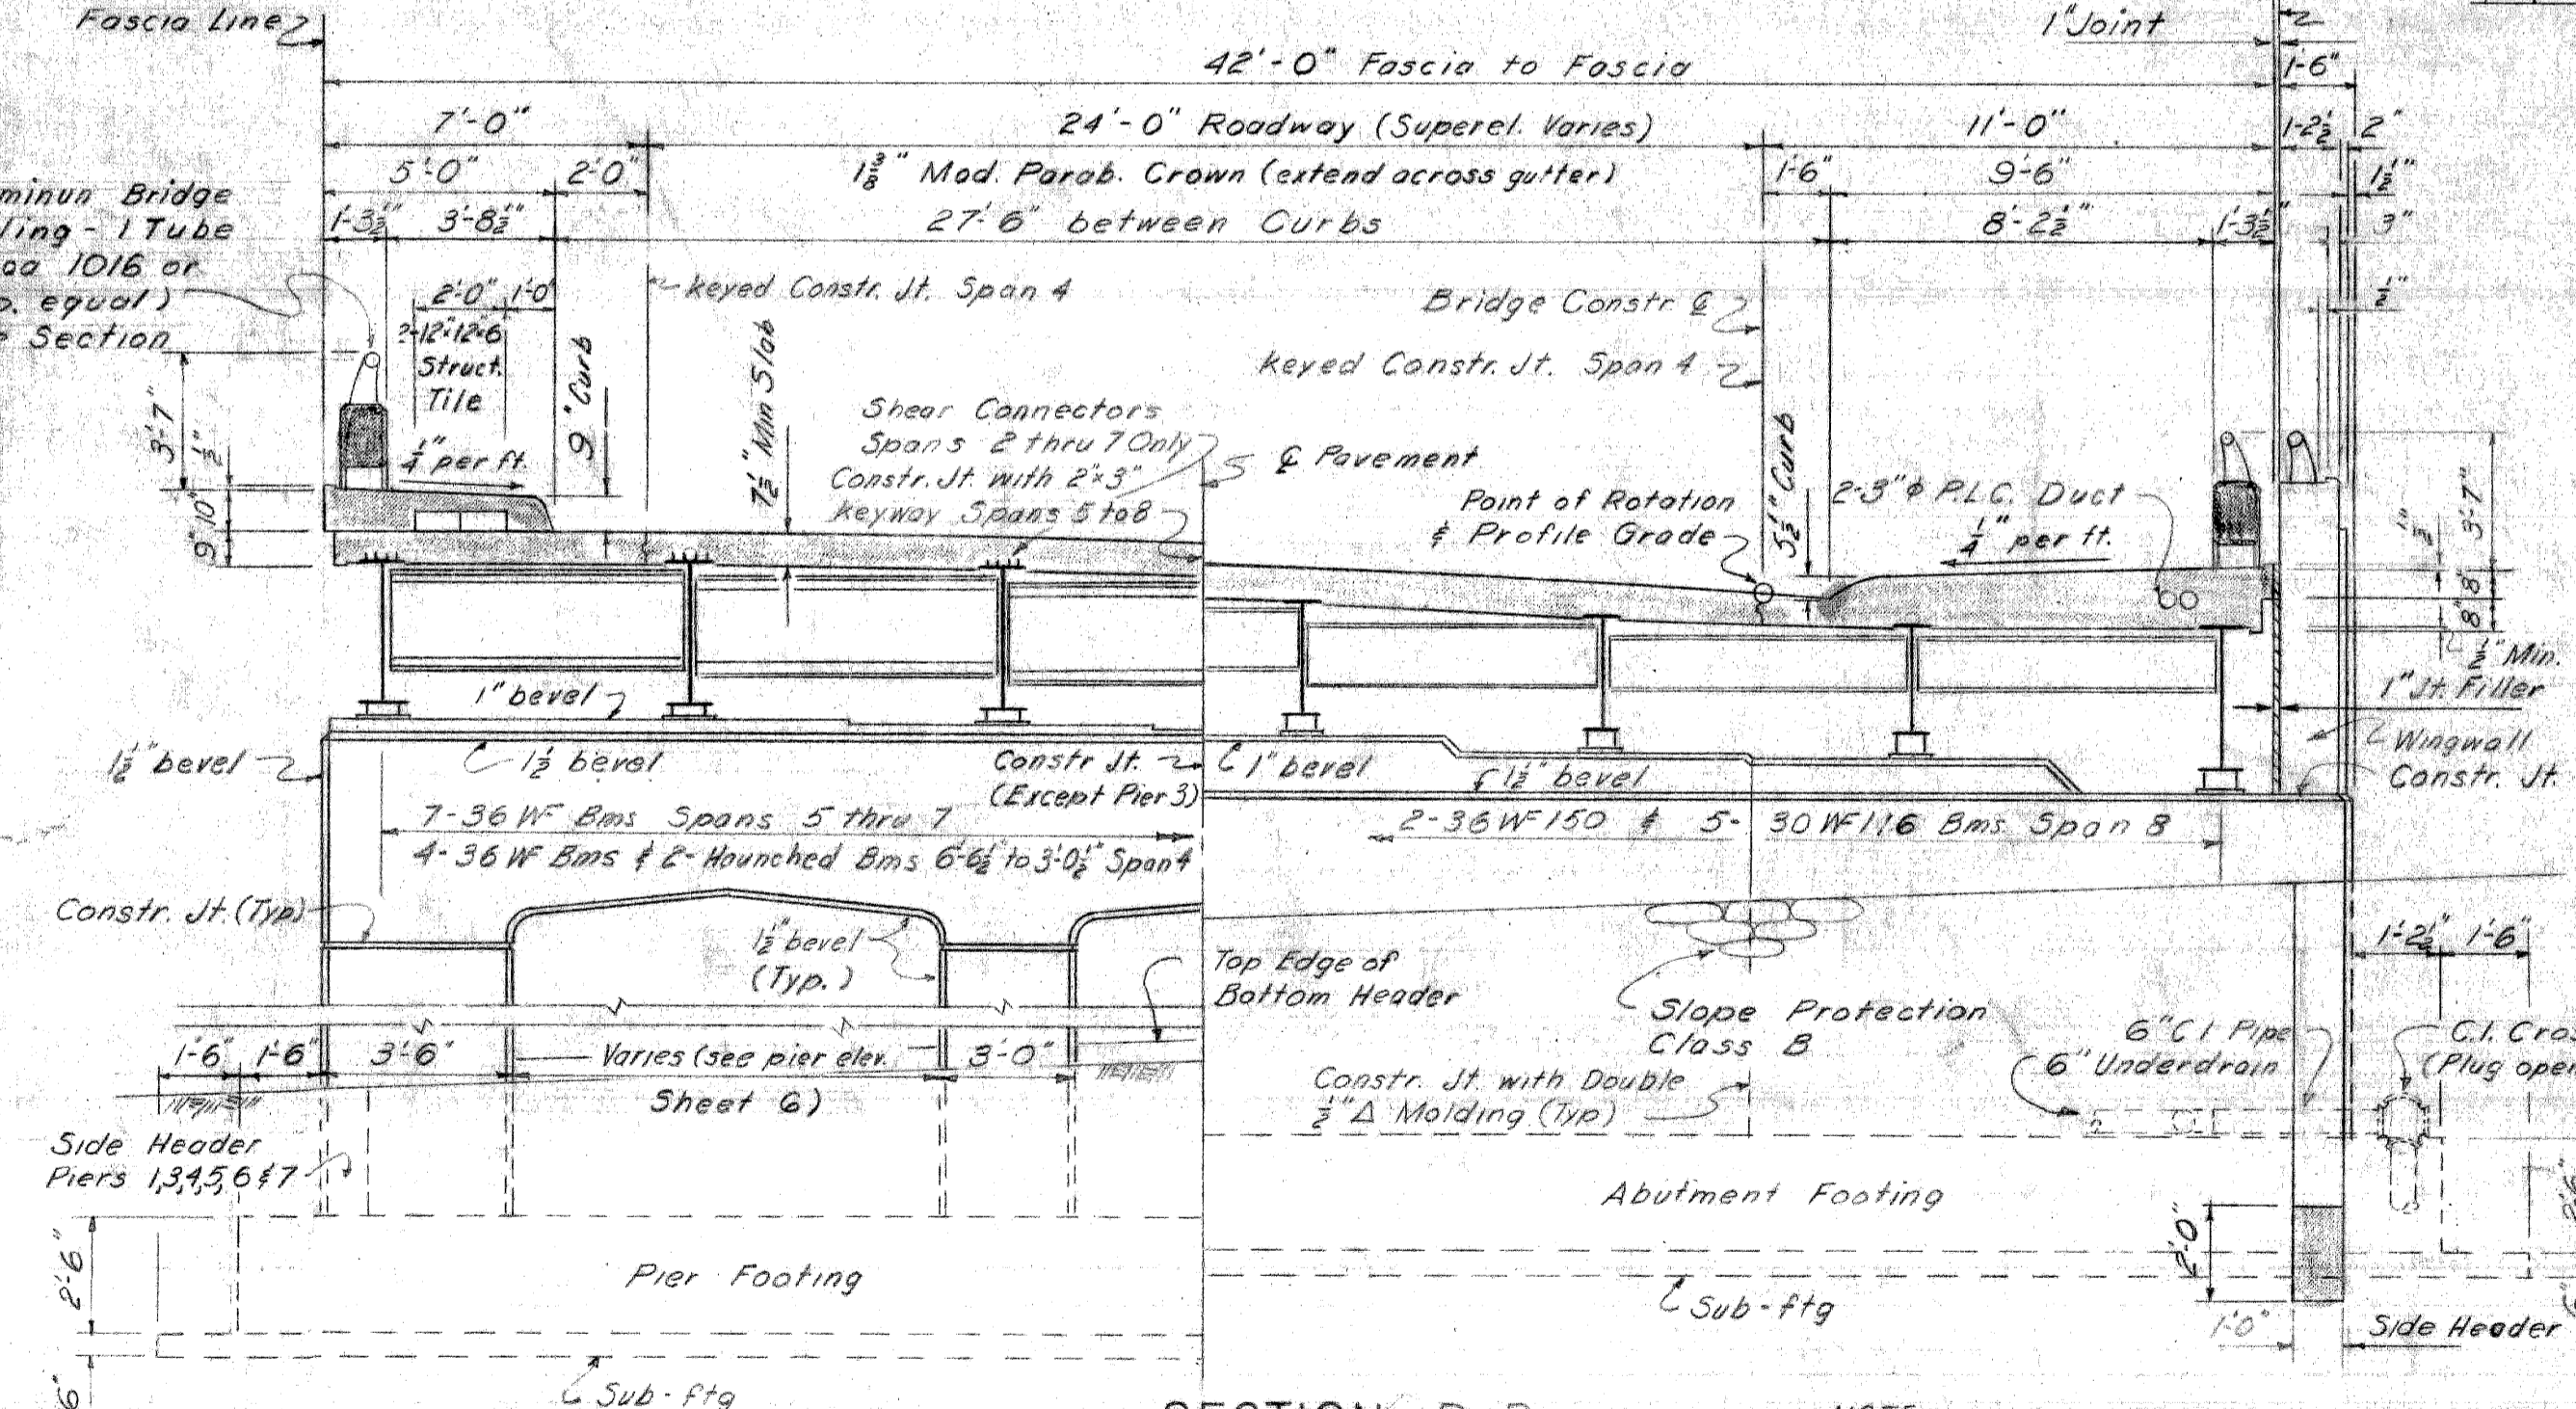 Fascia Line
1" Joint
42'-0" Fascia to Fascia
1'-6"
7'-0"
24'-0" Roadway (Superel. Varies)
11'-0"
1'-2½"
2"
5'-0"
2'-0"
1⅜" Mod. Parab. Crown (extend across gutter)
1'-6"
9'-6"
1½"
minun Bridge
ling - 1 Tube
1016 or
equal)
Section
1'-3½"
3'-8½"
27'-6" between Curbs
8'-2½"
1'-3½"
3"
½"
2'-0"
1'-0"
2-12"x12"x6
Struct.
Tile
keyed Constr. Jt. Span 4
Bridge Constr ℄
keyed Constr. Jt. Span 4
3'-7"
½"
10"
9"
¼" per ft.
9" Curb
7½" Min Slab
Shear Connectors
Spans 2 thru 7 Only
Constr. Jt. with 2"x3"
keyway Spans 5 to 8
℄ Pavement
Point of Rotation
& Profile Grade
5½" Curb
2-3"φ P.L.C. Duct
¼" per ft.
½"
3'-7"
8"
8"
½" Min.
1" Jt. Filler
Wingwall
Constr. Jt.
1" bevel
1½" bevel
1½" bevel
Constr Jt.
(Except Pier 3)
1" bevel
1½" bevel
7-36 WF Bms Spans 5 thru 7
4-36 WF Bms & 2-Haunched Bms 6'-6½" to 3'-0½" Span 4
2-36 WF 150 & 5-30 WF 116 Bms Span 8
Constr. Jt. (Typ)
1½" bevel
(Typ.)
Top Edge of
Bottom Header
Slope Protection
Class B
1'-2½"
1'-6"
6" C I Pipe
6" Underdrain
C.I. Cros
(Plug open
1'-6"
1'-6"
3'-6"
Varies (see pier elev.
Sheet 6)
3'-0"
Constr. Jt. with Double
½" Δ Molding (Typ)
Side Header
Piers 1,3,4,5,6 & 7
Abutment Footing
2'-6"
Pier Footing
2'-0"
Sub-ftg
1'-0"
Side Header
6"
Sub-ftg
SECTION